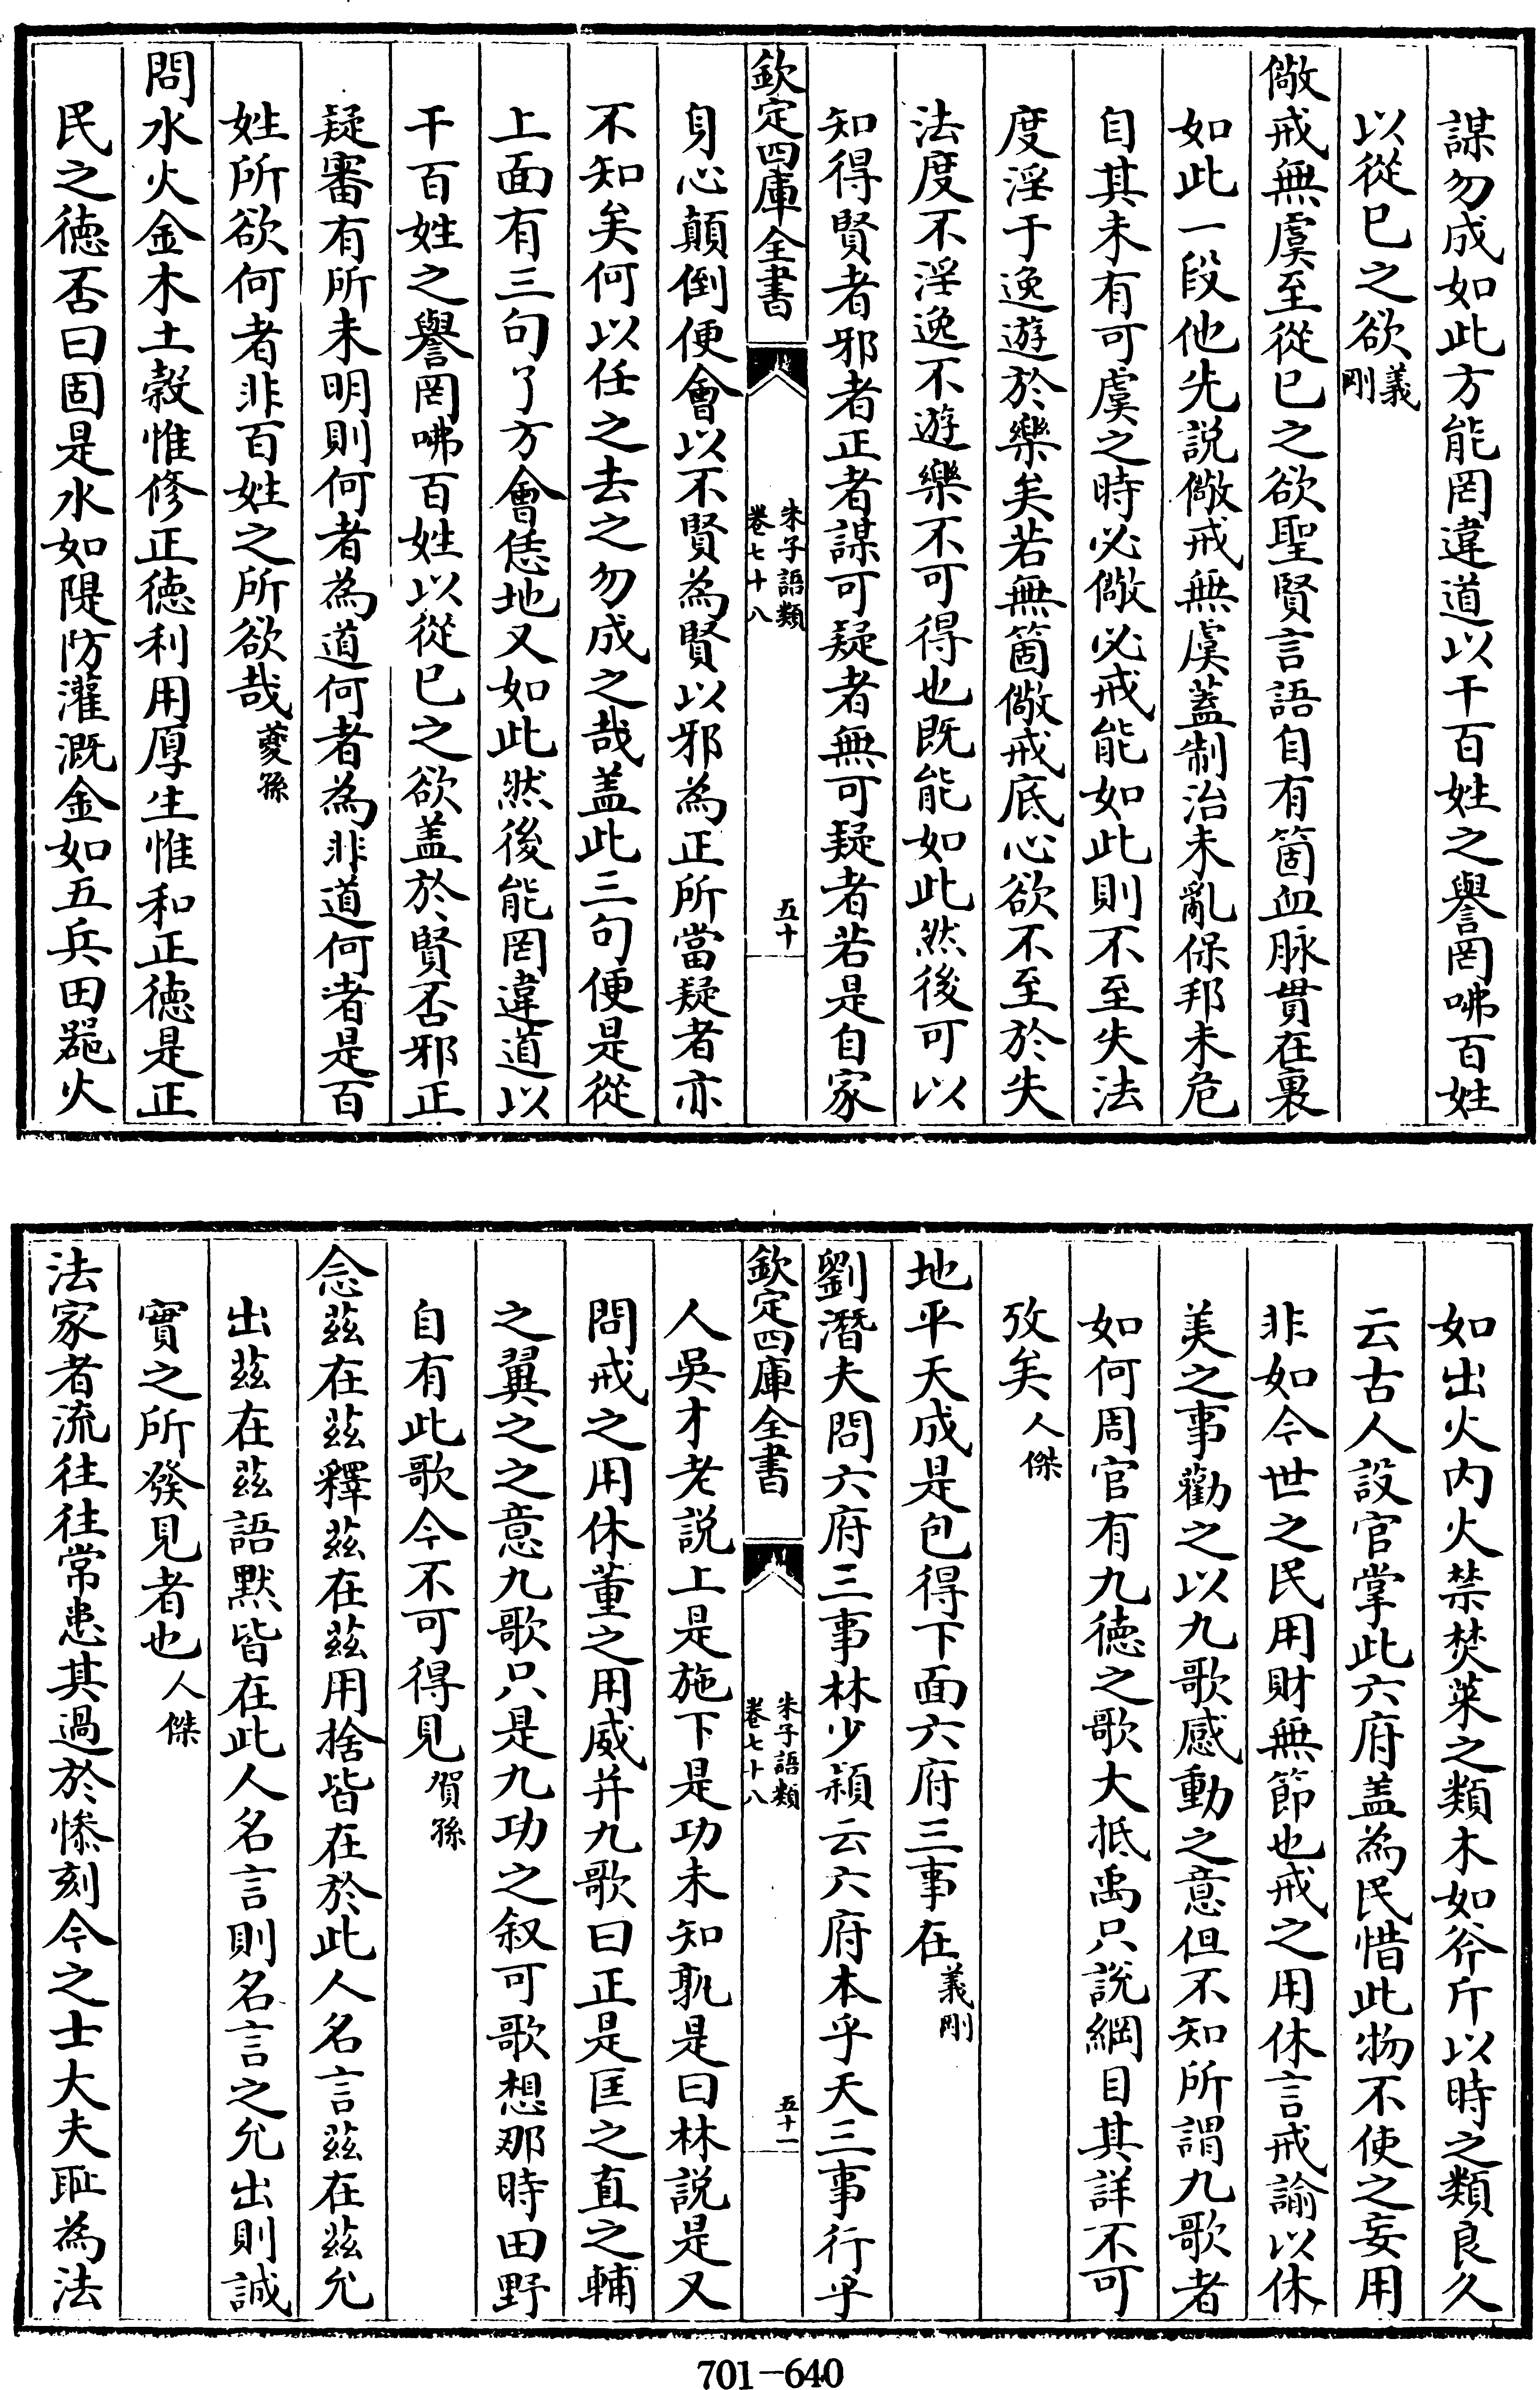 謀勿成如此方能罔違道以干百姓之譽罔咈百姓
以從已之欲義剛
儆戒無虞至從已之欲聖賢言語自有箇血脉貫在裏
如此一段他先説儆戒無虞蓋制治未亂保邦未危
自其未有可虞之時必儆必戒能如此則不至失法
度淫于逸遊於樂矣若無箇儆戒底心欲不至於失
法度不淫逸不遊樂不可得也既能如此然後可以
知得賢者邪者正者謀可疑者無可疑者若是自家
欽定四庫全書
朱子語類
卷七十八
五十
身心顛倒便會以不賢為賢以邪為正所當疑者亦
不知矣何以任之去之勿成之哉盖此三句便是從
上面有三句了方會恁地又如此然後能罔違道以
干百姓之譽罔咈百姓以從已之欲盖於賢否邪正
疑審有所未明則何者為道何者為非道何者是百
姓所欲何者非百姓之所欲哉夔孫
問水火金木土穀惟修正德利用厚生惟和正德是正
民之德否曰固是水如隄防灌溉金如五兵田器火
如出火内火禁焚萊之類木如斧斤以時之類良久
云古人設官掌此六府盖為民惜此物不使之妄用
非如今世之民用財無節也戒之用休言戒諭以休
美之事勸之以九歌感動之意但不知所謂九歌者
如何周官有九德之歌大抵禹只說綱目其詳不可
攷矣人傑
地平天成是包得下面六府三事在義剛
劉潛夫問六府三事林少穎云六府本乎天三事行乎
欽定四庫全書
朱子語類
卷七十八
五十一
人吳才老説上是施下是功未知孰是曰林説是又
問戒之用休董之用威并九歌曰正是匡之直之輔
之翼之之意九歌只是九功之叙可歌想那時田野
自有此歌今不可得見賀孫
念茲在茲釋茲在茲用捨皆在於此人名言茲在茲允
出茲在茲語默皆在此人名言則名言之允出則誠
實之所發見者也人傑
法家者流往往常患其過於慘刻今之士大夫耻為法
701-640